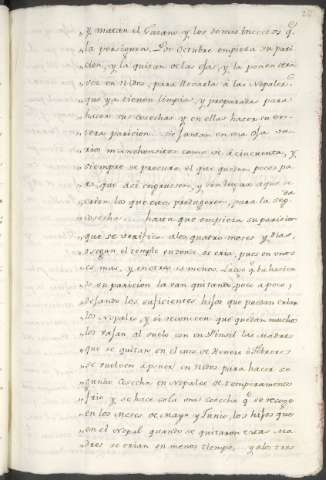 y matan el Gusano y los demas Insectos q.e
la persiguen. Por Octubre empieza su pari-
cion, y la quitan de las ojas, y la ponen otra
vez en Nidos, para llevarla a las Nopaleras
que ya tienen limpias, y preparadas para
hacer su cosecha y en ellas hacen su
paricion. Se juntan en una oja va-
rios manchoncitos como de á cincuenta, y
siempre se procura el que queden pocos pa-
ra que asi engruesen, y
crien los que para la seg.da
cosecha hasta que empieza su paricion
que se verifica a los quatro meses y dias
segun el temple en donde se cria, pues en unos
es mas, y en otros es menos. Luego q.e ha hecho
su paricion la van quitando poco a poco,
dejando los suficientes hijos que puedan cubrir
los Nopales, y si reconocen que quedan muchos
los bajan al suelo con un Pinsel. Las Madres
que se quitan en el mes de Enero ó Febrero
se vuelven a poner en Nidos para hacer se-
gunda cosecha en Nopales de temperamento
frio, y se hace sola una cosecha q.e se recoge
en los meses de Mayo y Junio, los hijos que
en el Nopal quando se quitaron estas Ma-
dres se crian en menos tiempo, y a los tres